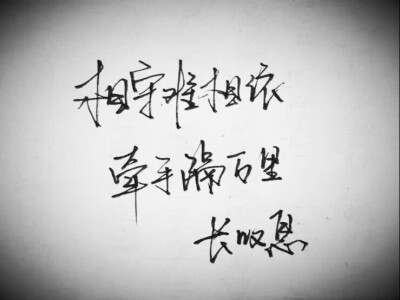 相守难相依
牵手隔百里
长叹息